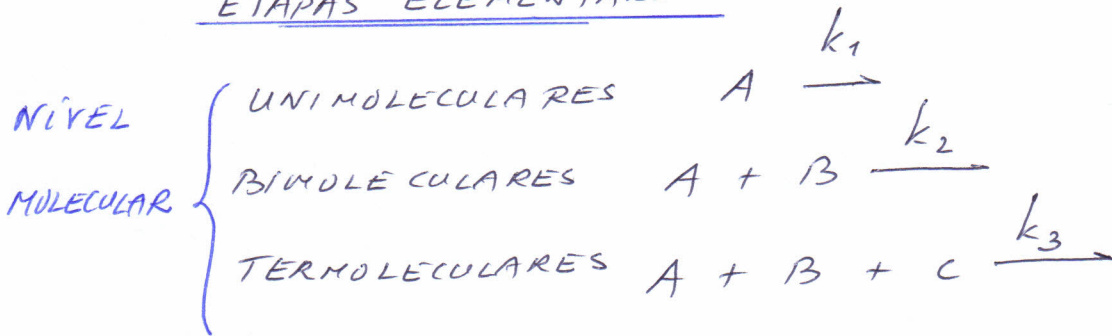 ETAPAS ELEMENTARES
NÍVEL MOLECULAR
UNIMOLECULARES A → k1
BIMOLECULARES A + B → k2
TERMOLECULARES A + B + C → k3